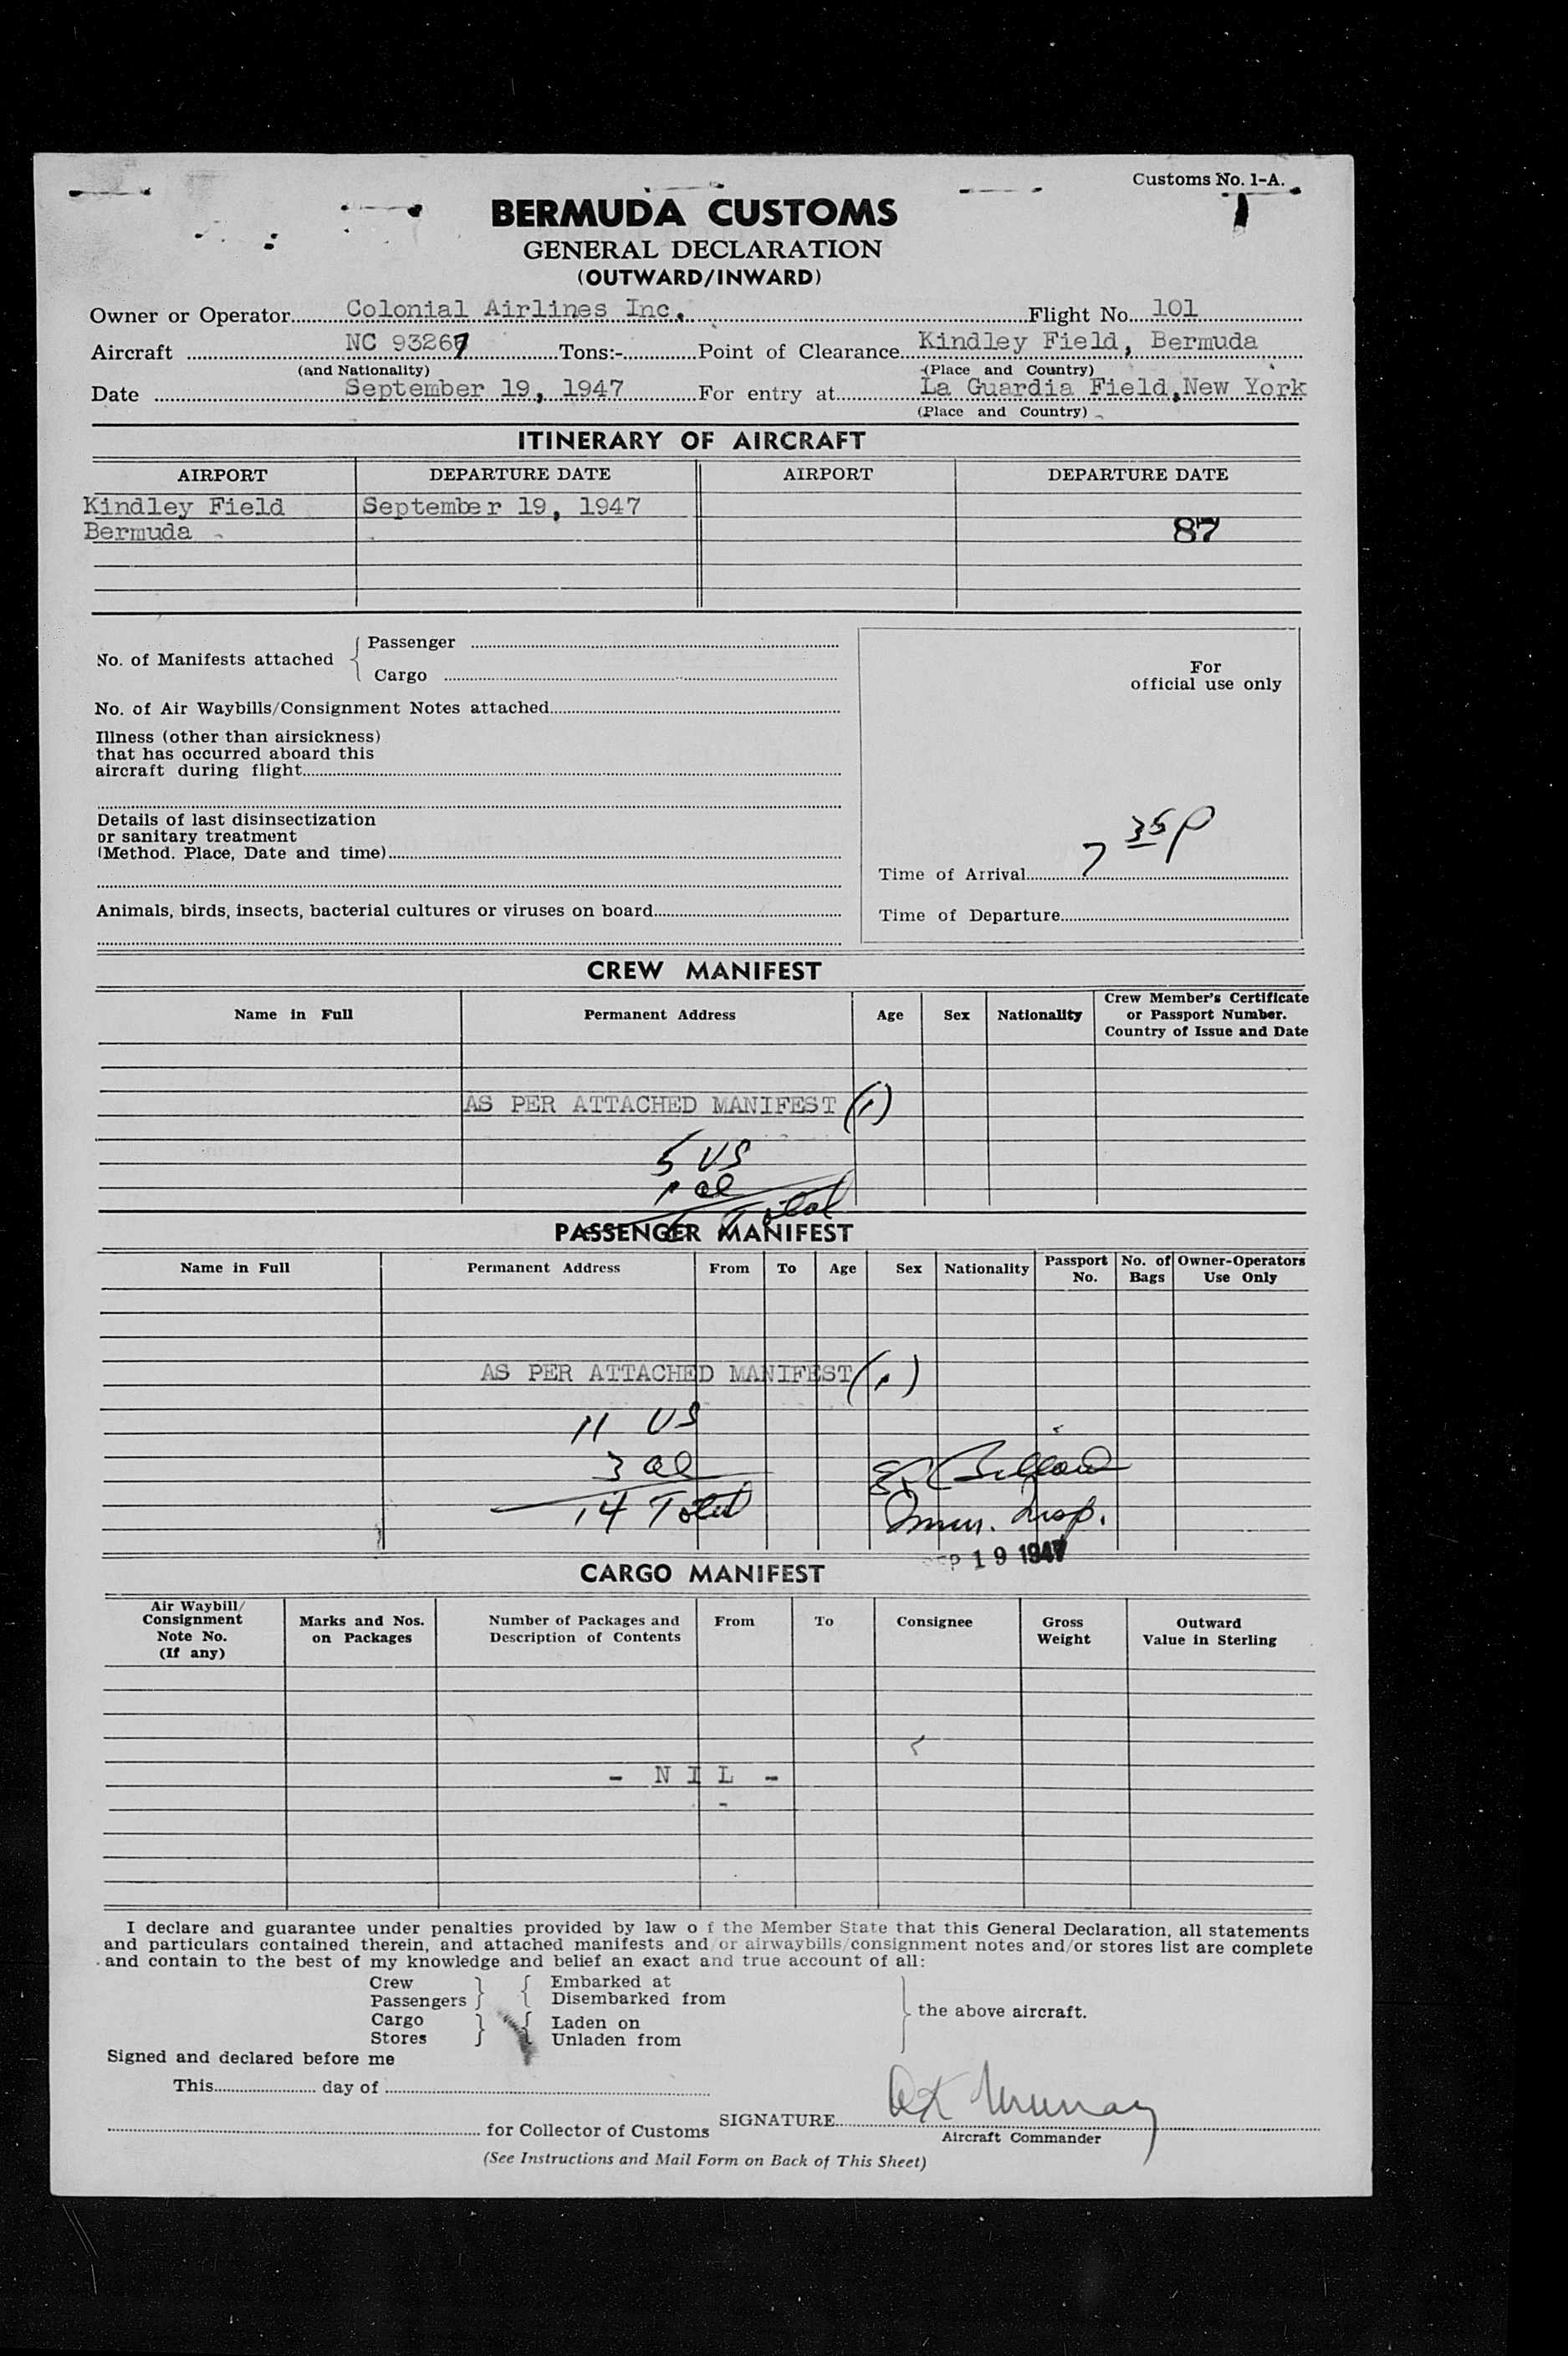 Customs No. 1-A.
BERMUDA CUSTOMS
GENERAL DECLARATION
(OUTWARD/INWARD)
Owner or Operator Colonial Airlines Inc. Flight No. 101
Aircraft NC 93267 Tons:- Point of Clearance Kindley Field, Bermuda
(and Nationality) (Place and Country)
Date September 19, 1947 For entry at La Guardia Field, New York
(Place and Country)
ITINERARY OF AIRCRAFT
AIRPORT DEPARTURE DATE AIRPORT DEPARTURE DATE
Kindley Field September 19, 1947
Bermuda 87
No. of Manifests attached { Passenger
Cargo
For
official use only
No. of Air Waybills/Consignment Notes attached
Illness (other than airsickness)
that has occurred aboard this
aircraft during flight
Details of last disinsectization
or sanitary treatment
(Method. Place, Date and time)
Time of Arrival 7 35 p
Animals, birds, insects, bacterial cultures or viruses on board
Time of Departure
CREW MANIFEST
Name in Full Permanent Address Age Sex Nationality Crew Member's Certificate
or Passport Number.
Country of Issue and Date
AS PER ATTACHED MANIFEST (1)
5 US
1 al
6 Total
PASSENGER MANIFEST
Name in Full Permanent Address From To Age Sex Nationality Passport No. No. of Bags Owner-Operators Use Only
AS PER ATTACHED MANIFEST (1)
11 US
3 al
14 Total
Immi. Insp.
SEP 19 1947
CARGO MANIFEST
Air Waybill/
Consignment
Note No.
(If any)
Marks and Nos.
on Packages
Number of Packages and
Description of Contents
From To Consignee
Gross
Weight
Outward
Value in Sterling
- N I L -
I declare and guarantee under penalties provided by law o f the Member State that this General Declaration, all statements
and particulars contained therein, and attached manifests and/or airwaybills/consignment notes and/or stores list are complete
and contain to the best of my knowledge and belief an exact and true account of all:
Crew } { Embarked at
Passengers } { Disembarked from
Cargo } { Laden on
Stores } { Unladen from
} the above aircraft.
Signed and declared before me
This day of
for Collector of Customs SIGNATURE Murray
Aircraft Commander
(See Instructions and Mail Form on Back of This Sheet)